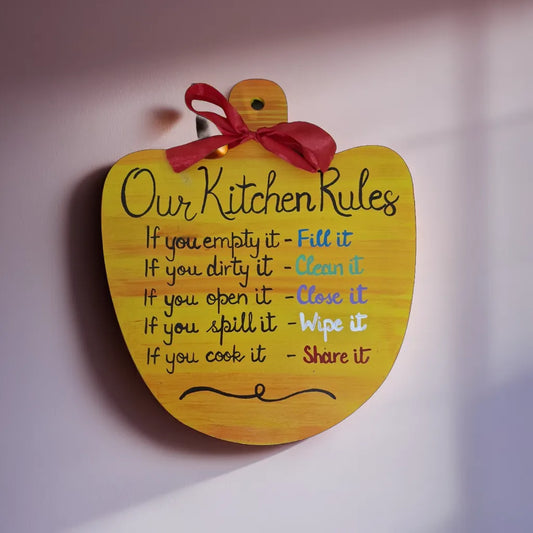 Our Kitchen Rules
If you empty it - Fill it
If you dirty it - Clean it
If you open it - Close it
If you spill it - Wipe it
If you cook it - Share it